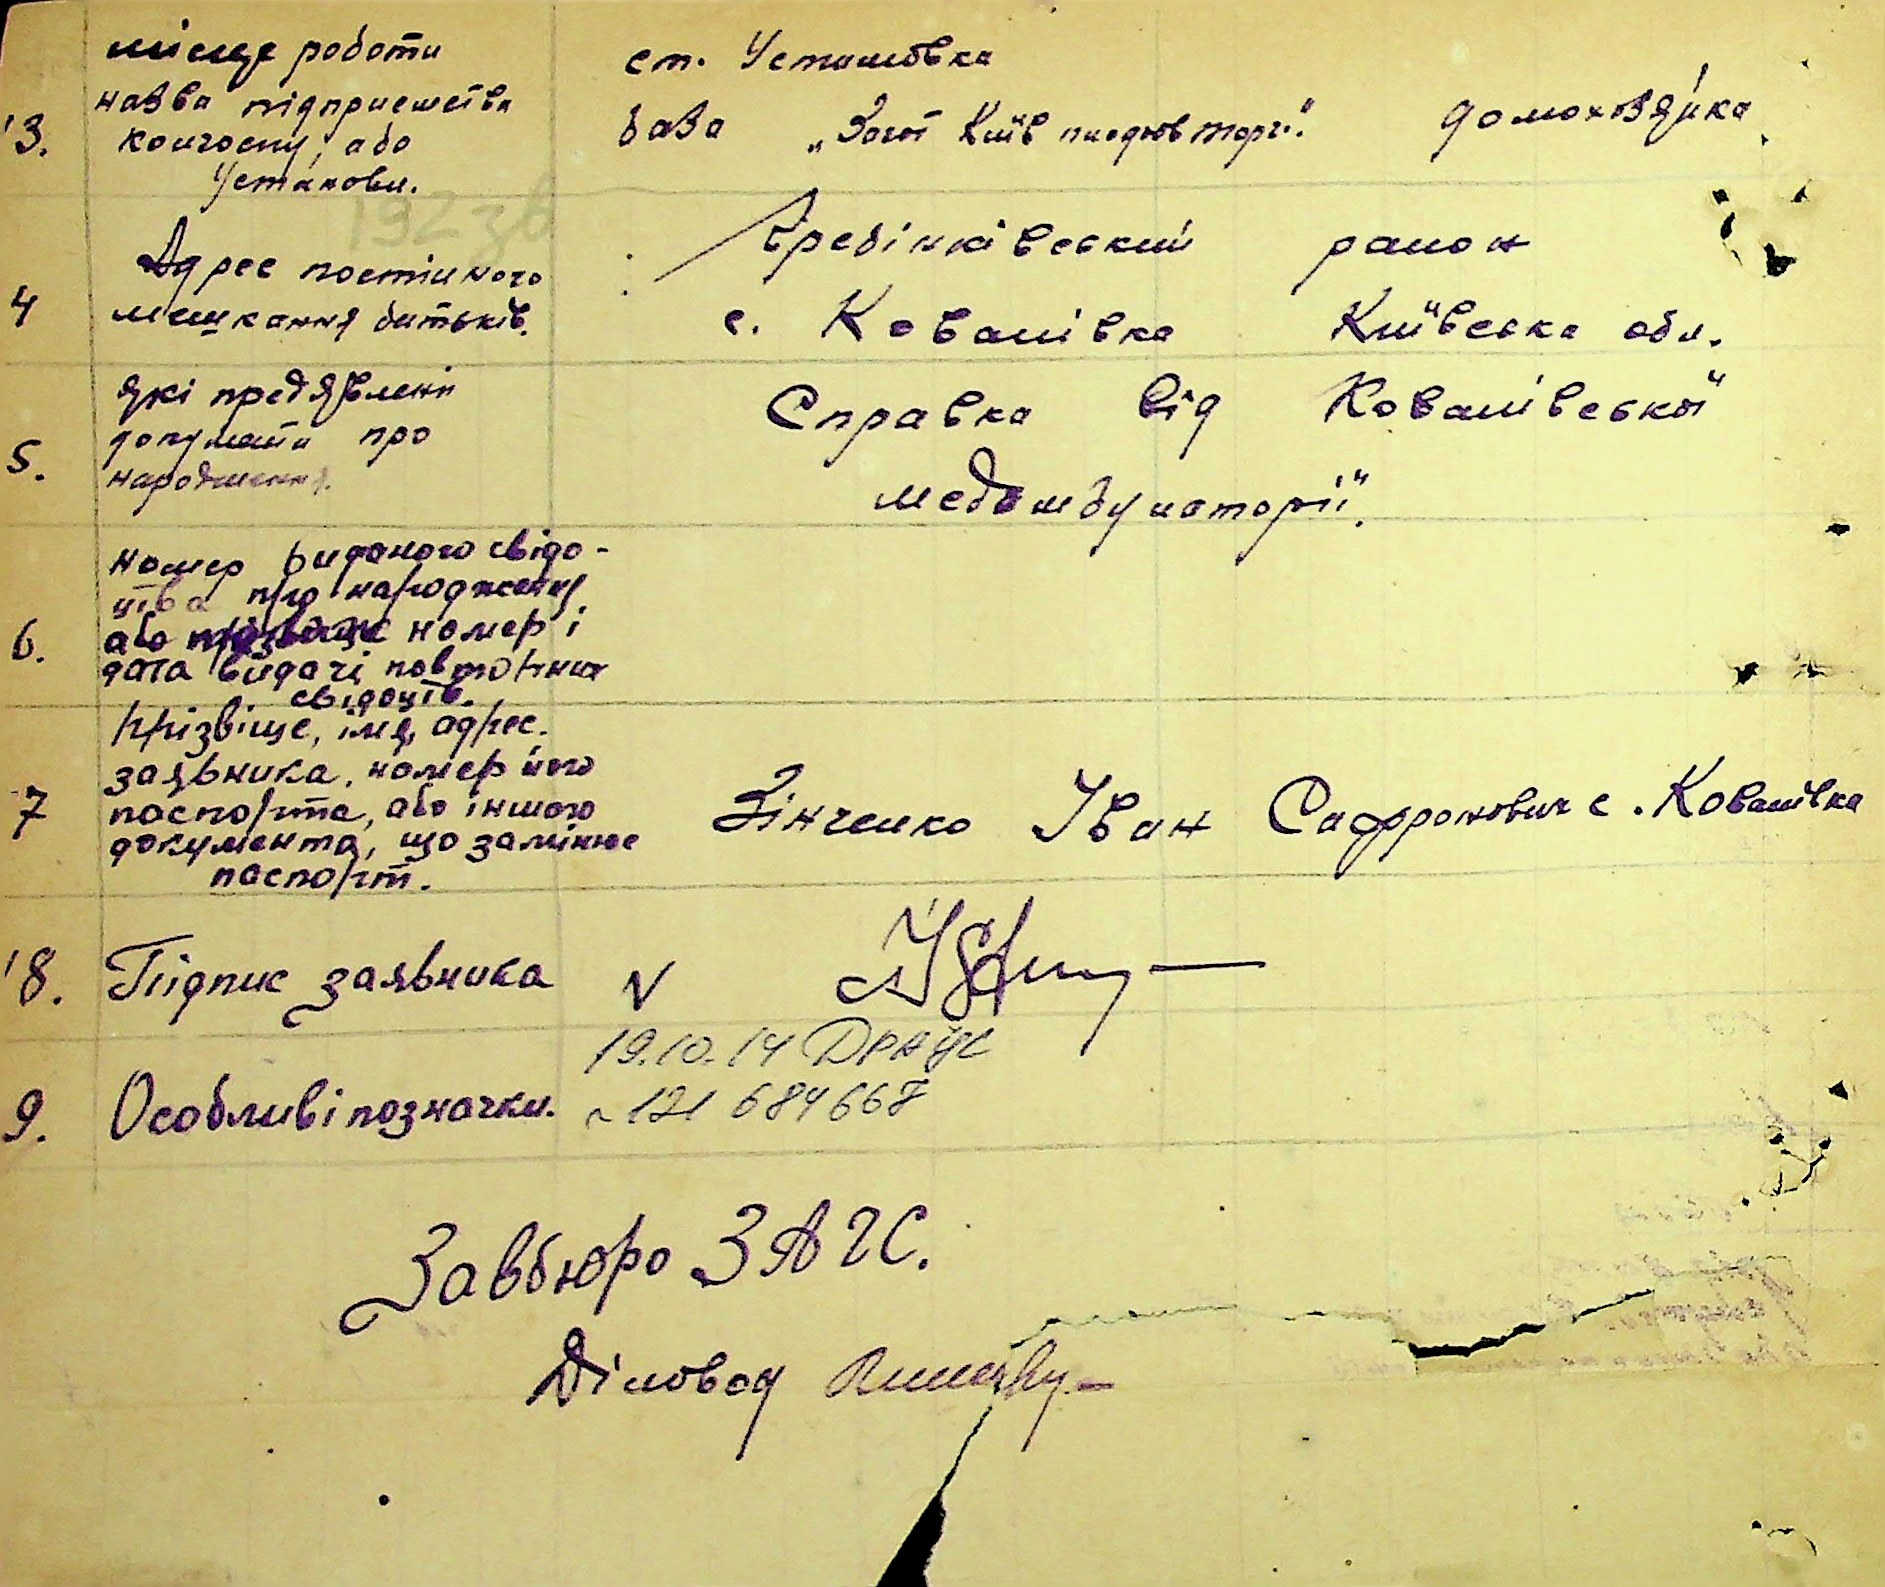 місце роботи
назва підприємства
'3. колгоспу, або
Установи.
ст. Устимовка
база „Загот Київ плодюв торг". домохозяйка
192 зв
Гребінківський район
4 Адрес постійного
мешкання батьків.
с. Ковалівка Київська обл.
5. які предявлені
документи про
народження.
Справка від Ковалівської
медамбулаторії".
номер виданого свідо-
цтва про народження
6. або номер і
дата видачі повторних
свідоцтв.
Прізвіще, імя, адрес.
заявника, номер його
7 паспорта, або іншого
документа, що замінює
паспорт.
Зінченко Іван Сафронович с. Ковалівка
'8. Підпис заявника
N
19.10.14 ДРАЦС
9. Особливі позначки.
~121 684667
Завбюро ЗАГС.
Діловод